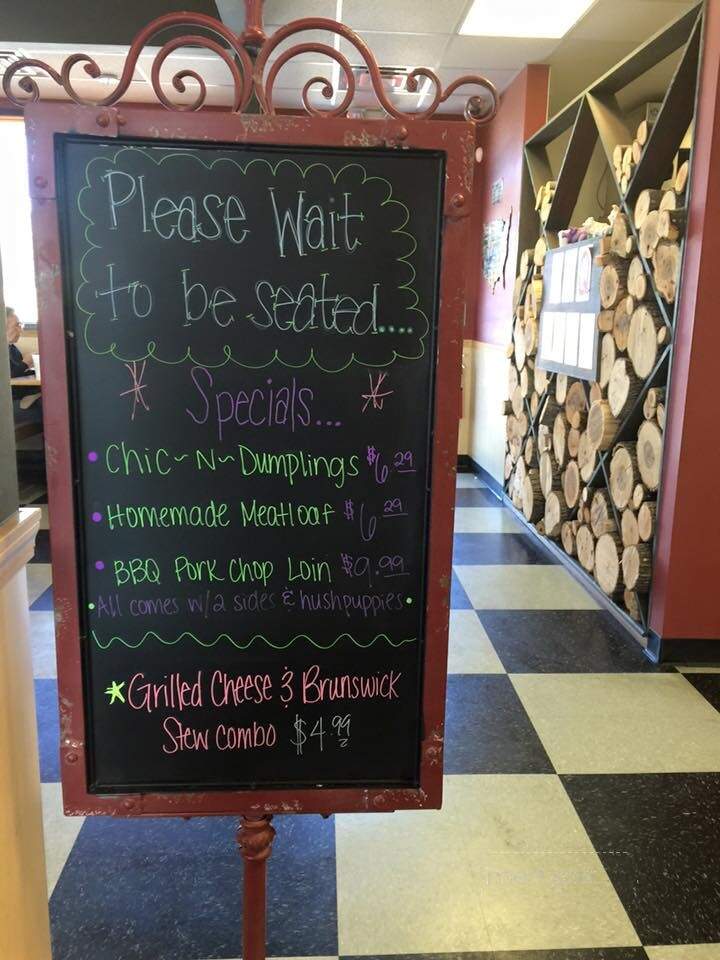 Please Wait
to be seated....
* Specials... *
• Chic~N~Dumplings $6.29
• Homemade Meatloaf $6.29
• BBQ Pork Chop Loin $9.99
• All comes w/2 sides & hushpuppies •
* Grilled Cheese & Brunswick
Stew combo $4.99